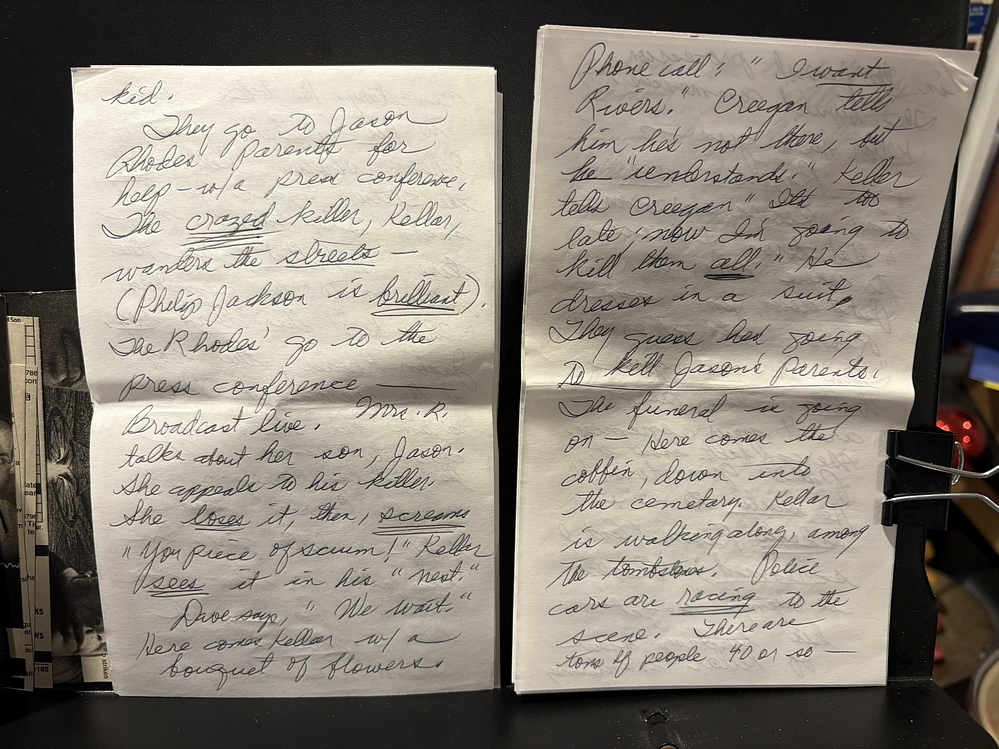 kid.
They go to Jason
Rhodes' Parents for
help - w/a press conference.
The crazed killer, Kellar,
wanters the streets -
(Philip Jackson is brilliant).
The Rhodes' go to the
press conference —
Broadcast live. Mrs. R.
talks about her son, Jason.
She appeals to his killer
She loses it, then, screams
"You piece of scum!" Kellar
sees it in his "nest."
Dave says, "We wait."
Here comes Kellar w/a
bouquet of flowers.
Phone call: "I want
Rivers." Creegan tells
him he's not there, but
he "understands." Keller
tells Creegan "It's too
late, now I'm going to
kill them all." He
dresses in a suit,
They guess he's going
To kill Jason's Parents.
The funeral is going
on — Here comes the
coffin, down into
the cemetary. Kellar
is walking along, among
the tombstones. Police
cars are racing to the
scene. There are
tons of people 40 or so —